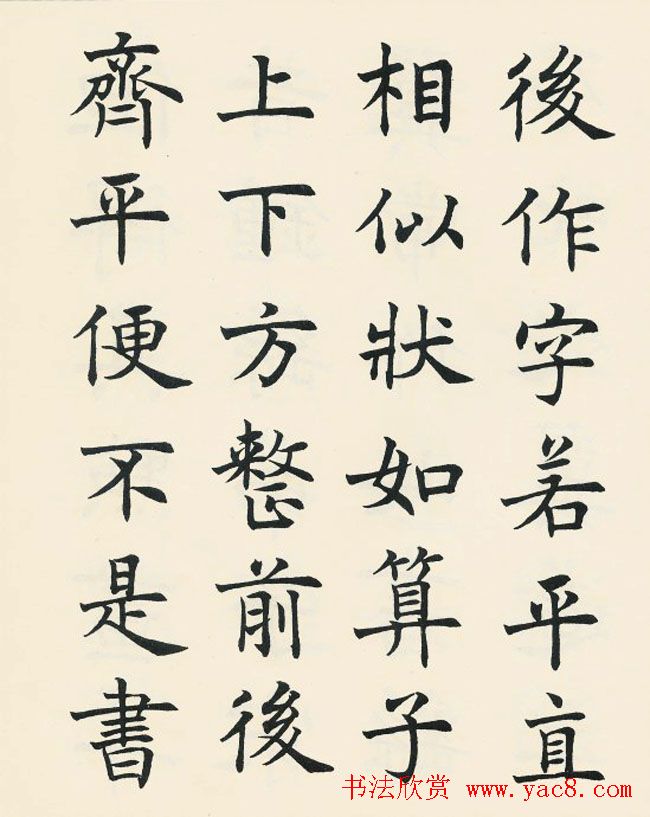 後作字若平直
相似狀如算子
上下方整前後
齊平便不是書
书法欣赏 www.yac8.com